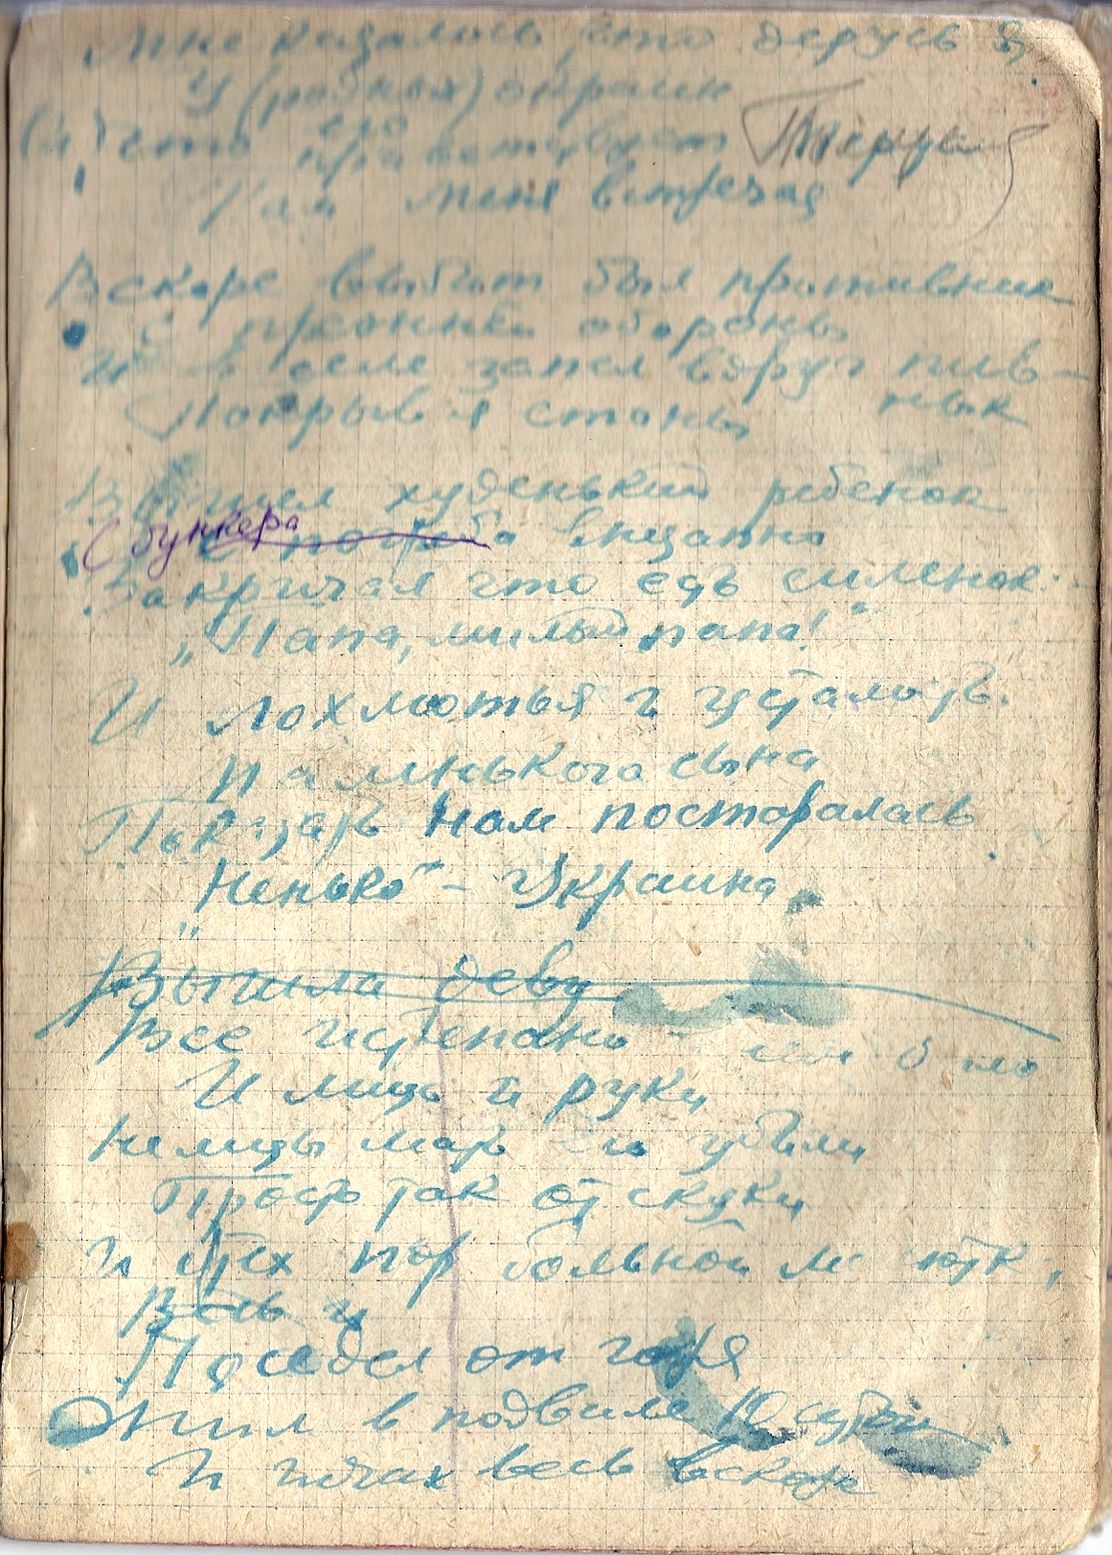 Мне казалось, что дерусь я
У (родных) окраин
(и) что его приветствует
Там меня встречая
Вскоре выбит был противник
С прежней обороны
И в селе запел вдруг пив-
нык
Покрывая стоны
Вышел худенький ребенок
С бункера внезапно
Закричал что есть силенок:
„Папа, милый папа!"
И лохмотья и усталость
маленького сына
Показать нам постаралась
"Ненько" - Украина.
Вышла деву
Все истерзано было
И лицо и руки
Немцы мать его убили
Просто так от скуки
И с тех пор больной малютка,
Весь и
Поседел от горя
Жил в подвале 10 суток
И зачах весь вскоре